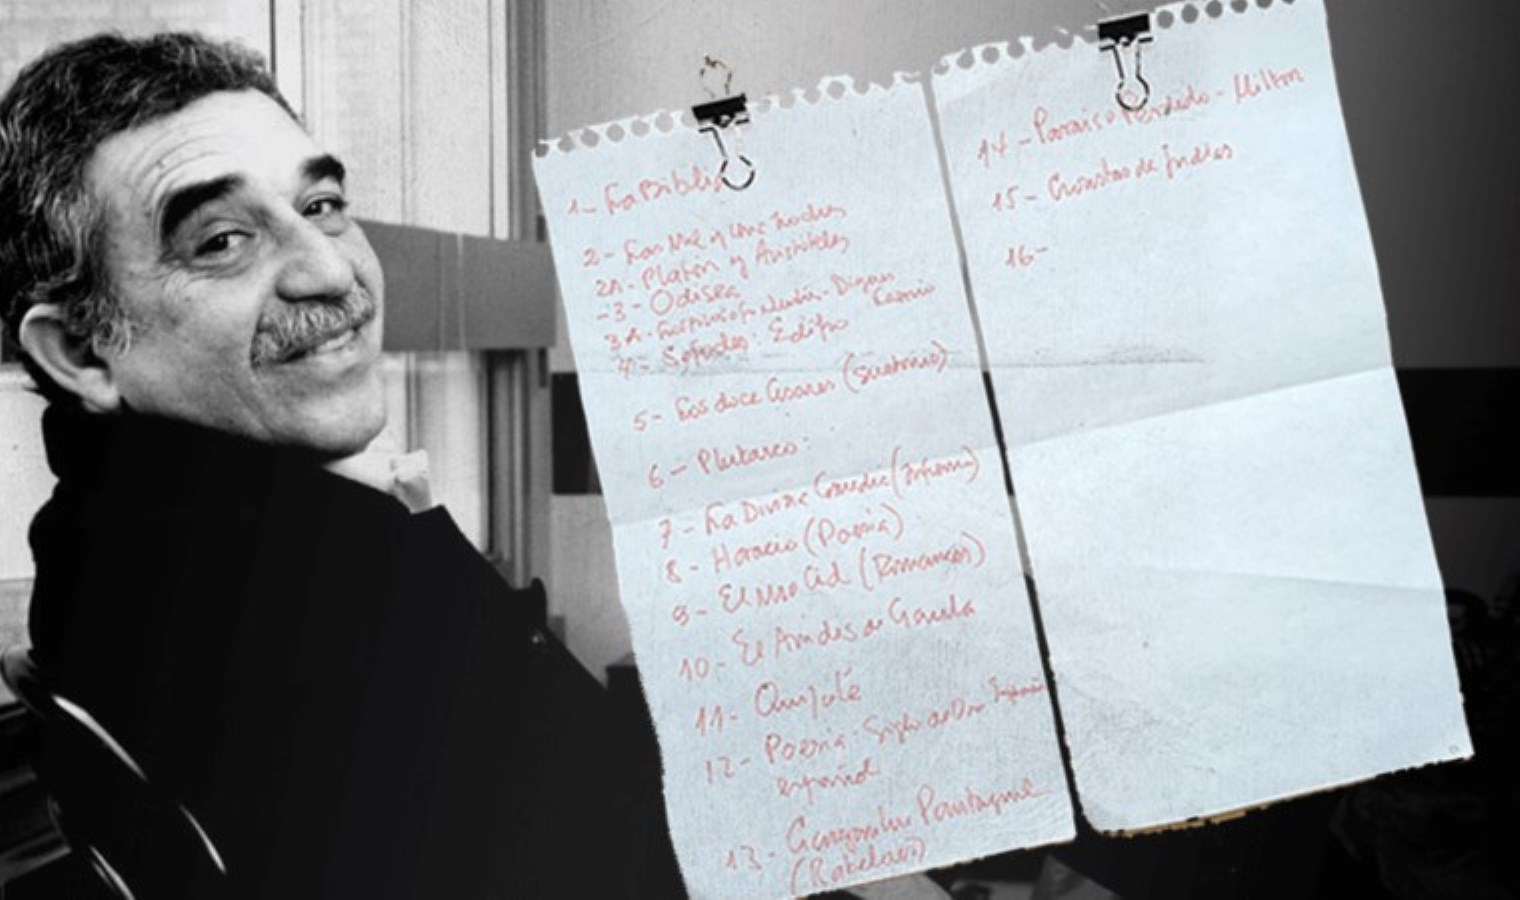 1- La Biblia
2- Las Mil y una noches
2A- Platón y Aristóteles
-3- Odisea
3A-
4- Sófocles: Edipo
5- Los doce Césares (Suetonio)
6- Plutarco:
7- La Divina Comedia (Infierno)
8- Horacio (Poesía)
9- El Mio Cid (Romances)
10- El Amadis de Gaula
11- Quijote
12- Poesía- Siglo de Oro
español
13- Gargantúa Pantagruel
(Rabelais)
14- Paraiso Perdido - Milton
15- Cronistas de Indias
16-